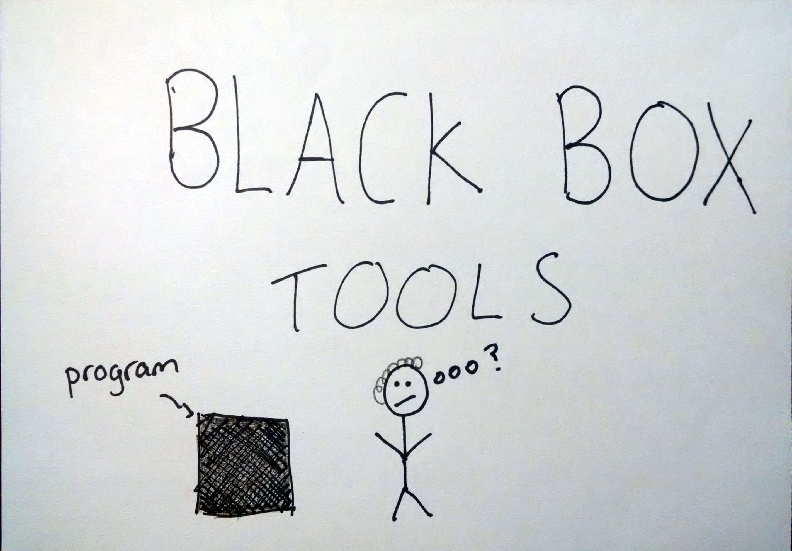 BLACK BOX
TOOLS
program
ooo?